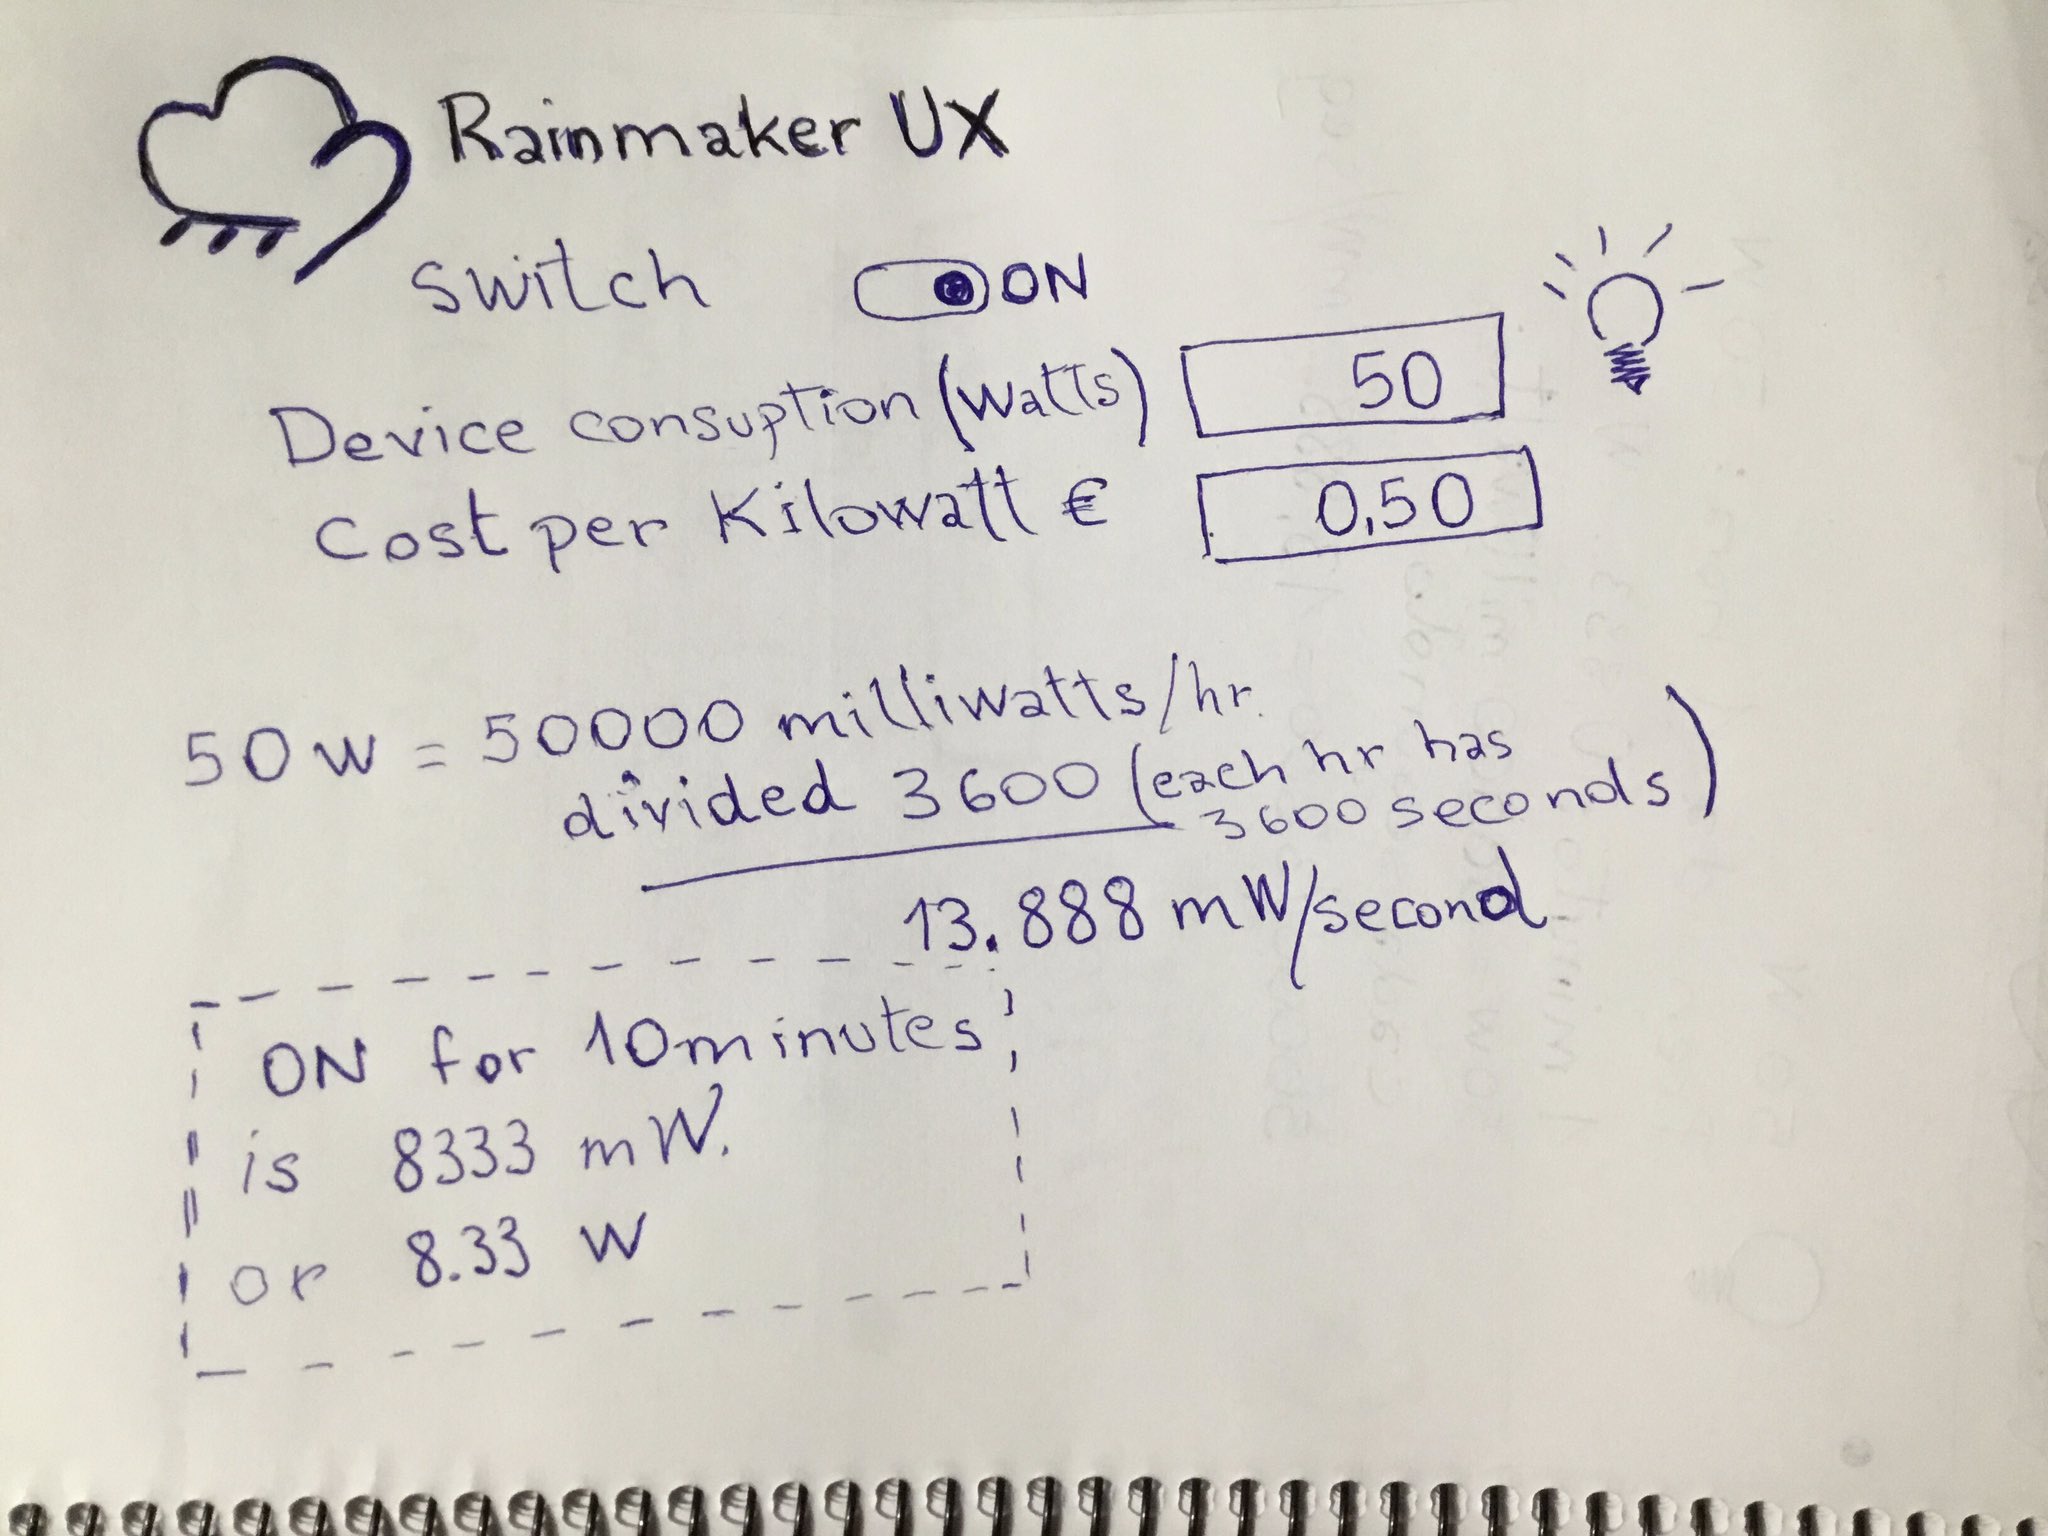 Rainmaker UX
switch ON
Device consuption (watts) 50
Cost per Kilowatt € 0,50
50 W = 50000 milliwatts/hr.
divided 3600 (each hr has
3600 seconds)
13.888 mW/second
ON for 10 minutes
is 8333 mW.
or 8.33 W